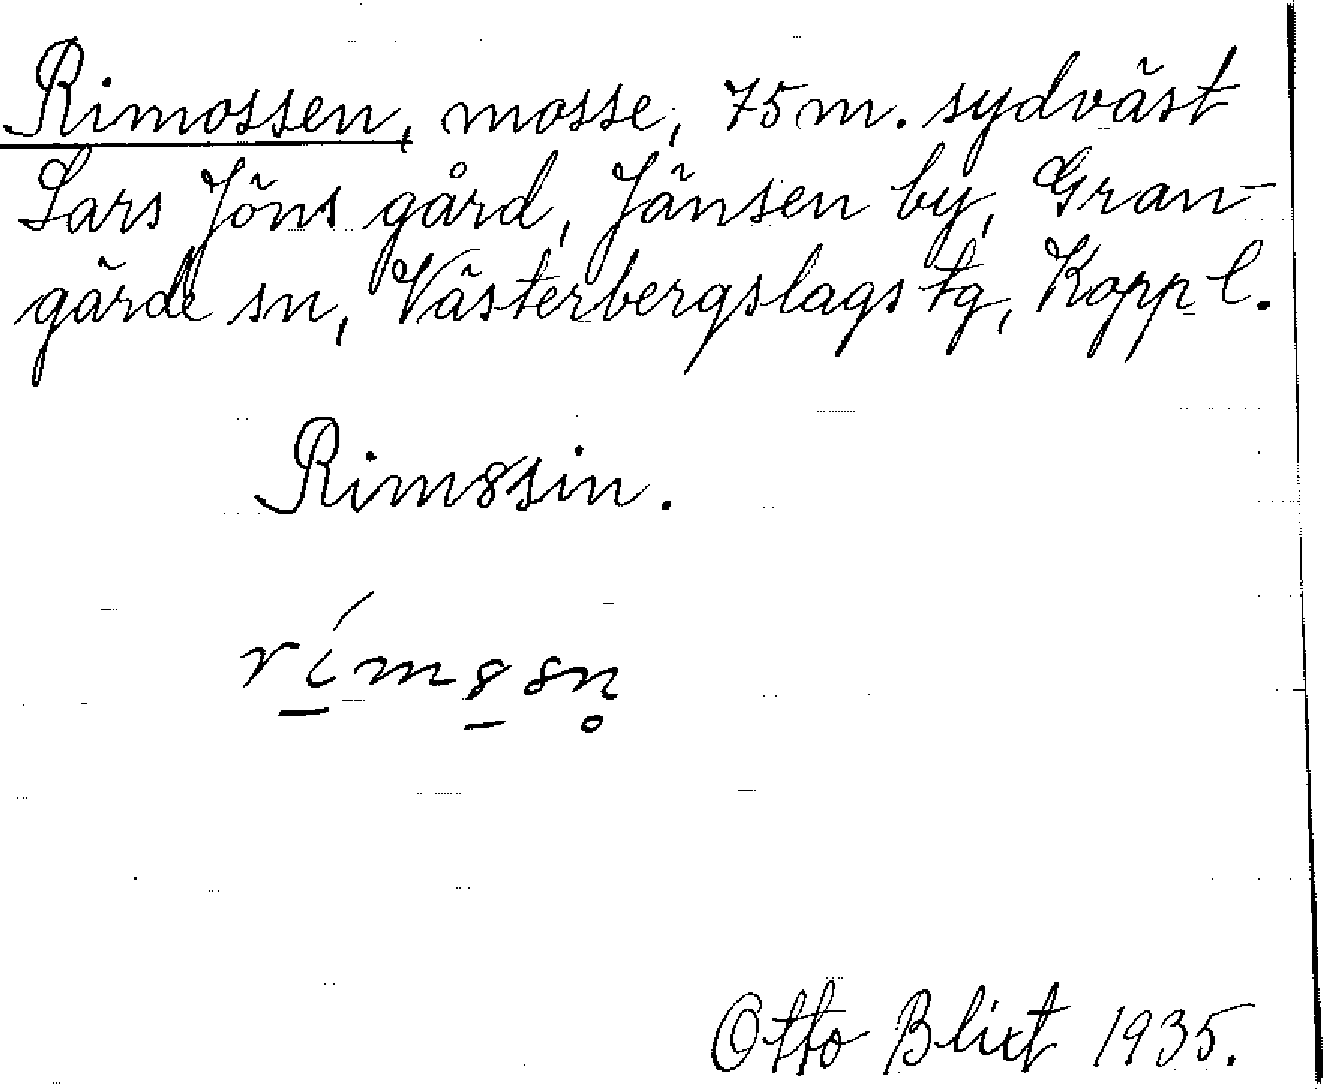 Rimossen, mosse, 75 m. sydväst
Lars Jöns gård, Jänsen by, Gran-
gärde sn, Västerbergslags tg, Kopp l.
Rim8sin.
rím8sn̥
Otto Blixt 1935.